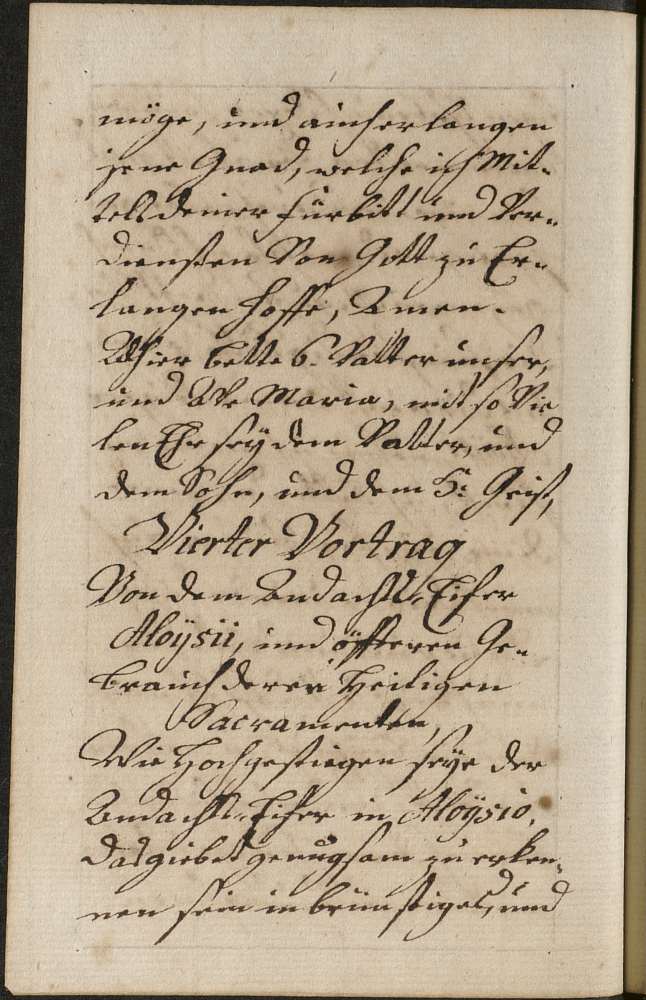 möge, und auch erlangen
jene Gnad, welche ich Mit-
tels deiner Fürbitt und Ver-
diensten Von Gott zu Er-
langen hoffe, Amen.
Allhier bette 6. Vatter unser,
und Ave Maria, mit so Vie
len Ehr seÿ dem Vatter, und
dem Sohn, und dem H: Geist,
Vierter Vortrag
Von dem Andachts-Eifer
Aloÿsii, und öffteren Ge-
brauch deren Heiligen
Sacramenten,
Wie Hochgestiegen seÿe der
Andachts-Eifer in Aloÿsio,
das giebet genugsam zu erken-
nen sein inbrünstiges, und